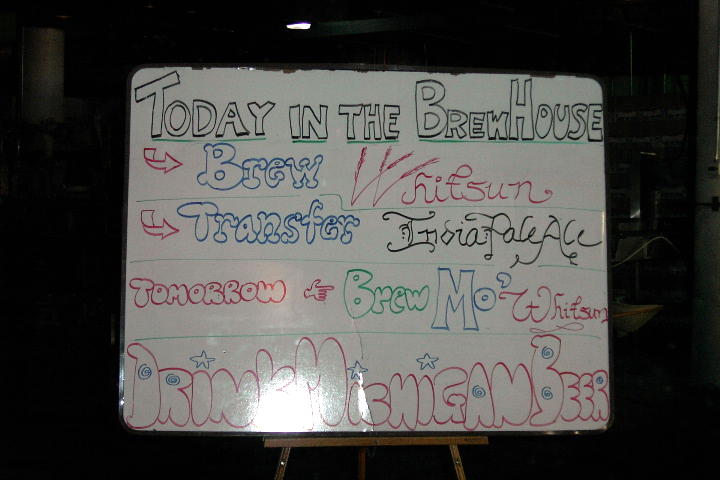 TODAY IN THE BREWHOUSE
Brew Whitsun
Transfer India Pale Ale
TOMORROW Brew Mo' Whitsun
DRINK MICHIGAN BEER